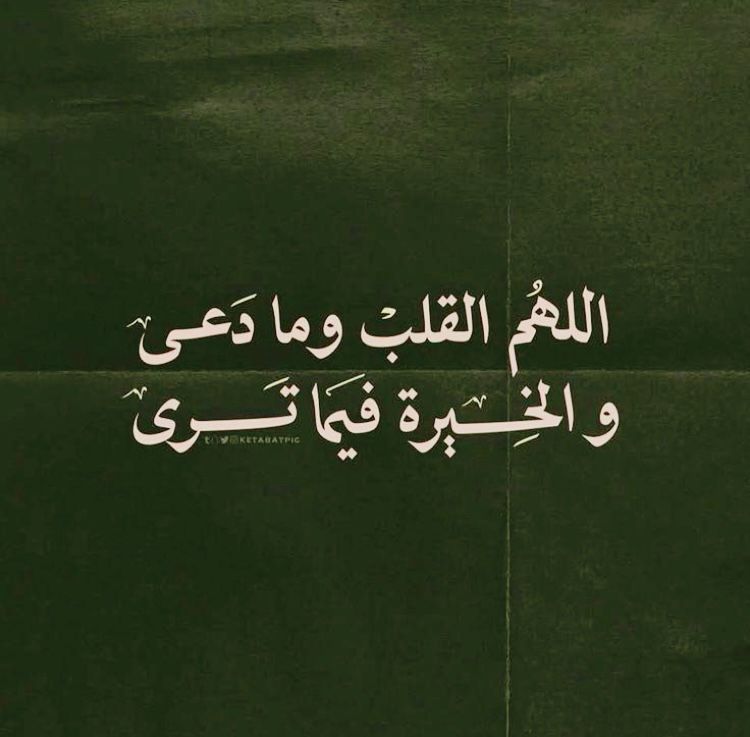 اللهُم القلبْ وما دَعى
و الخِيرة فيَما تَرى
KETABATPIC